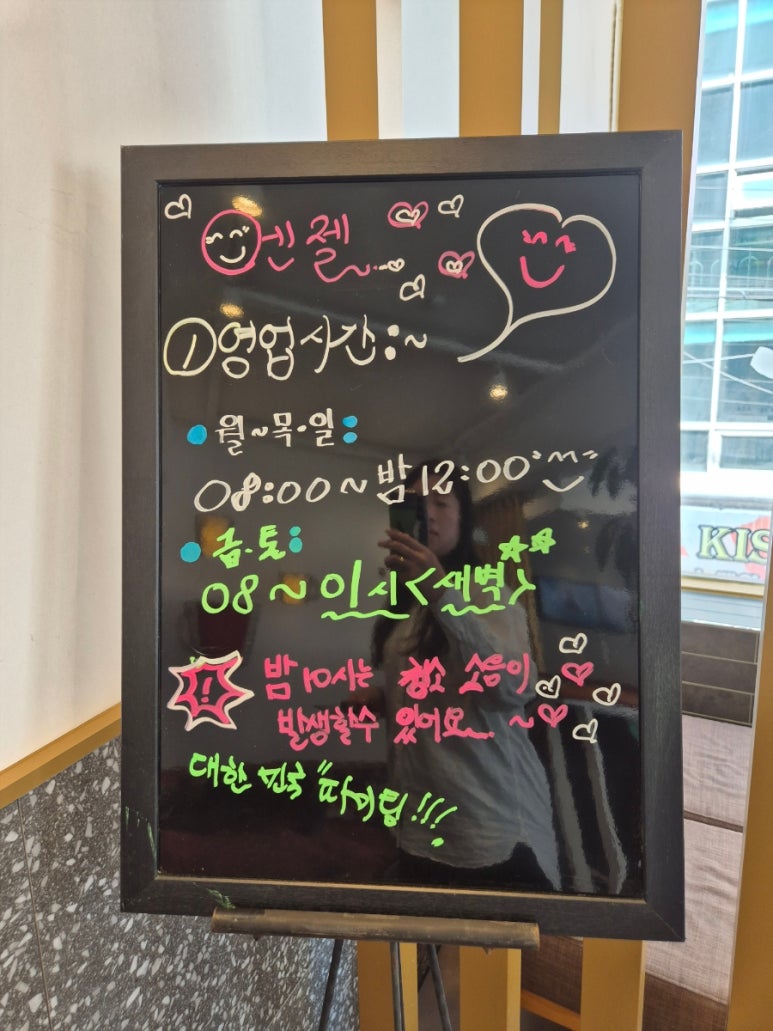 엔젤
① 영업시간:~
월~목·일:
08:00~밤12:00
금·토:
08~이시<새벽>
! 밤10시는 청소 소음이
발생할수 있어요~
대한민국 "파이팅!!!
KIS